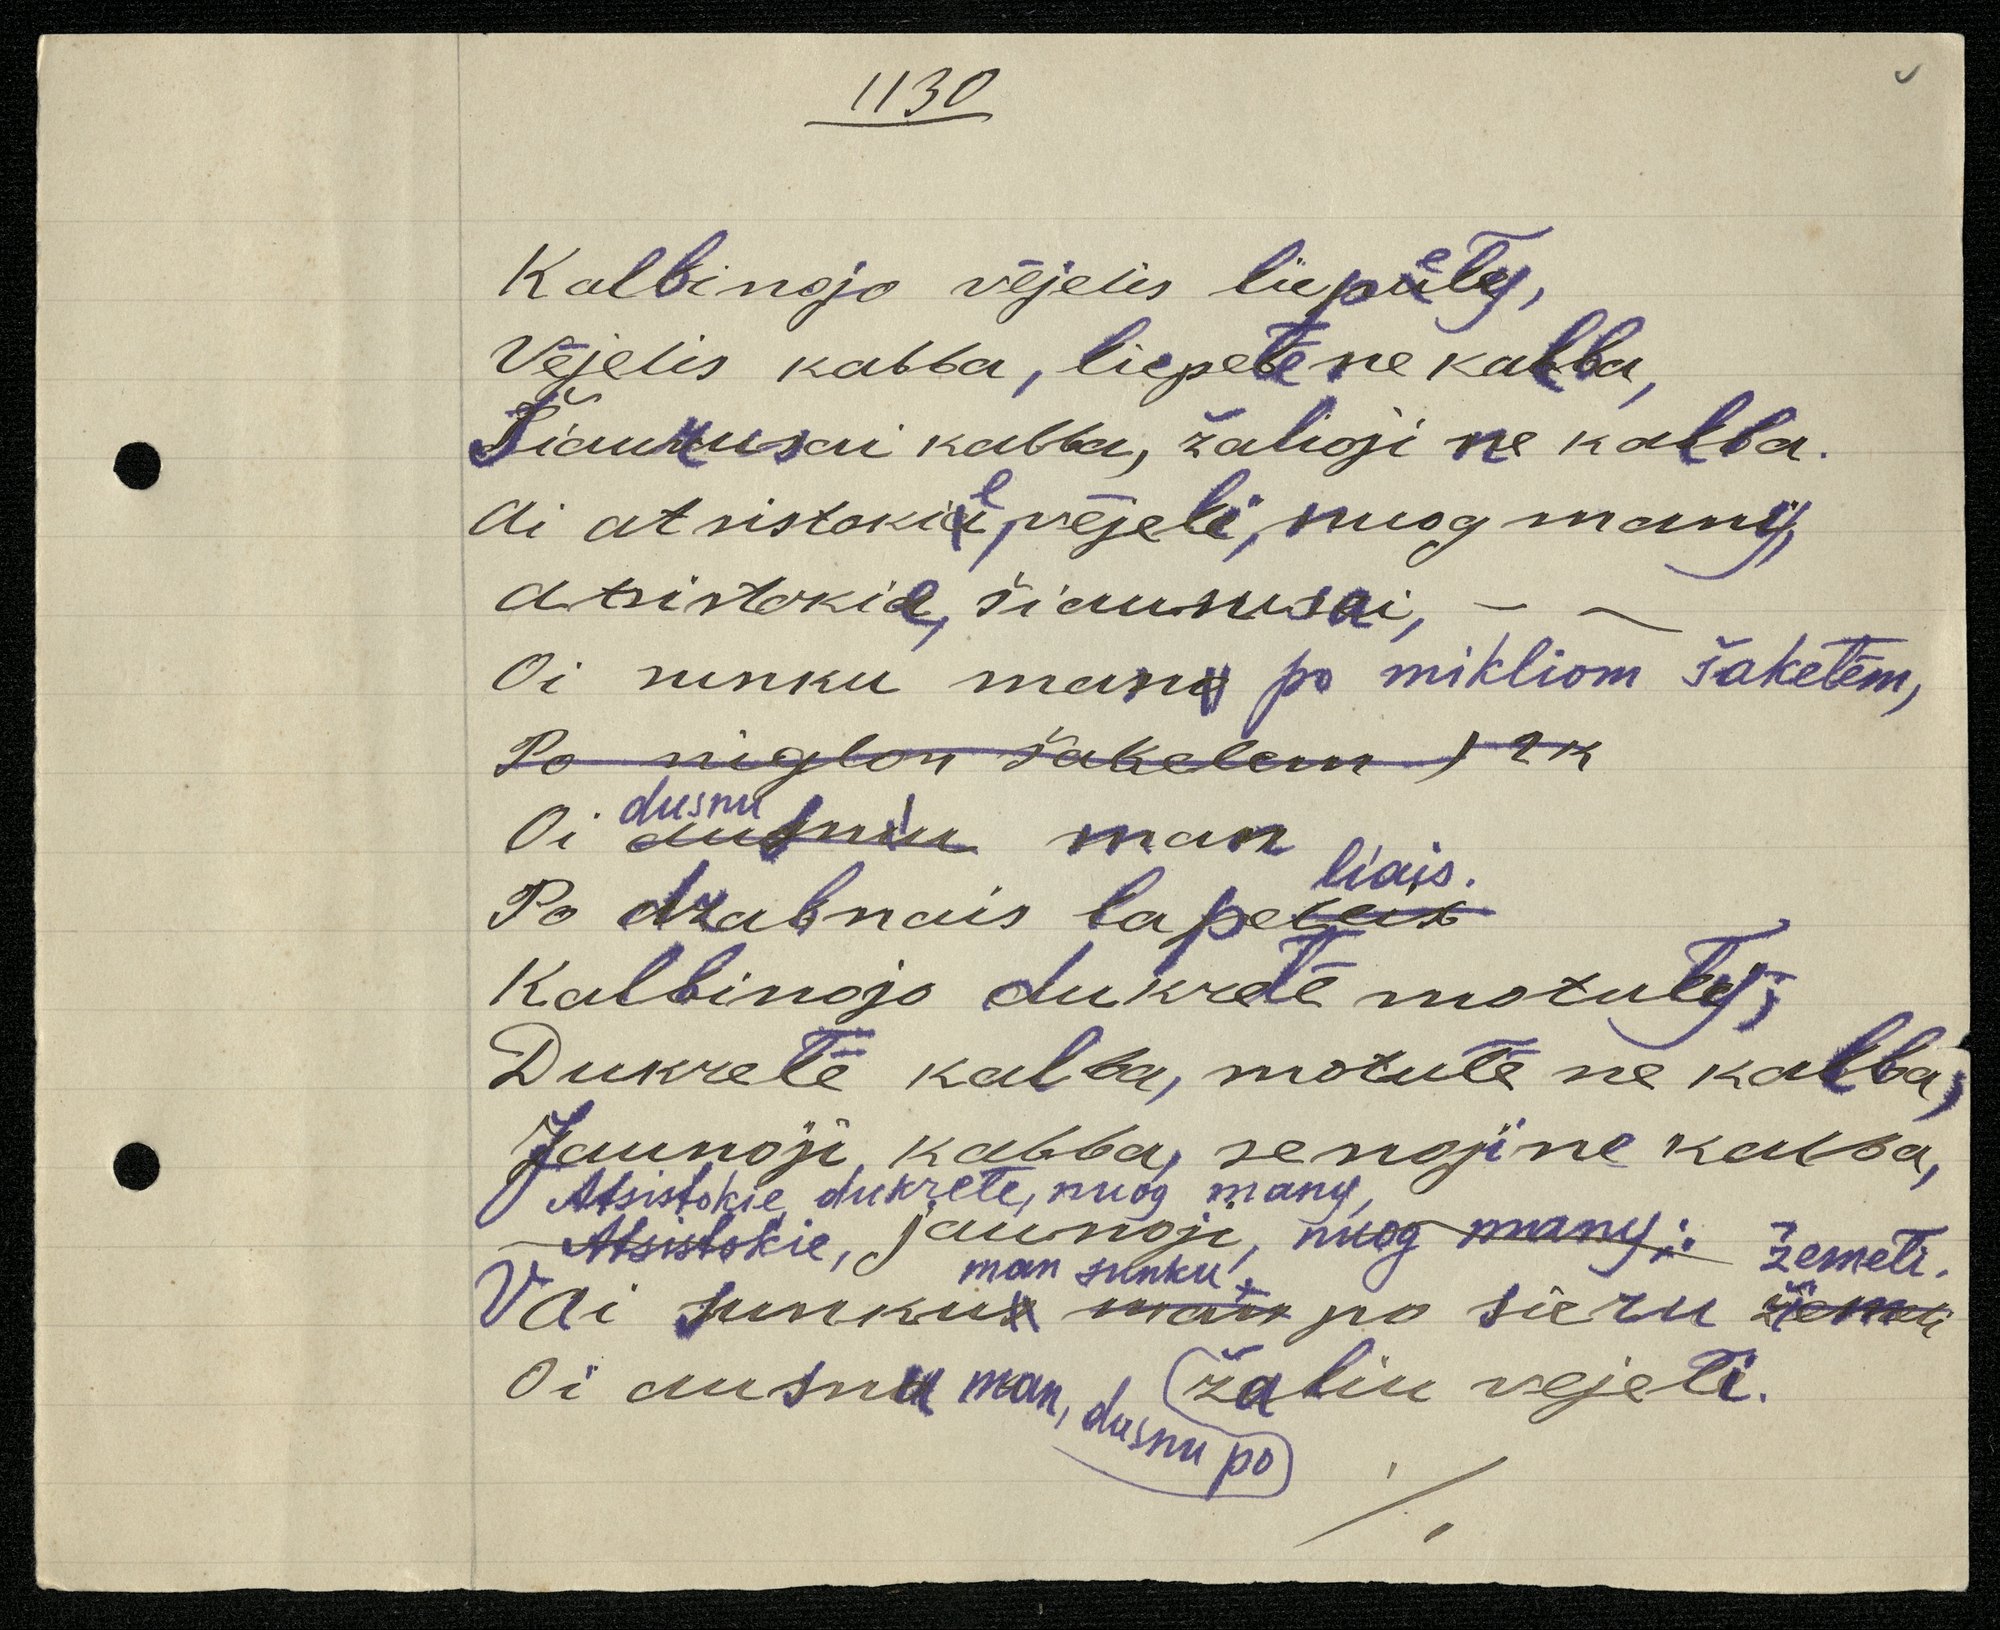 1130
Kalbinojo vėjelis liepetę,
Vėjelis kalba, liepetė ne kalba,
Šiaurusai kalba, žalioji ne kalba.
Ai atsistokie, vėjeli, nuog manį,
Atsistokie, šiaurusai, – –
Oi sunku man po mikliom šaketėm,
Po niglon šakelem } 2k
dusnu
Oi man
liais.
Po drabnais lape
Kalbinojo dukretė motutę;
Dukretė kalba, motutė ne kalba,
Jaunoji kalba, senoji ne kalba,
Atsistokie, dukrete, nuog manį,
Atsistokie, jaunoji, nuog manį; žemeti.
man sunku
Vai sunku man po sieru žemeti
Oi dusnu man, žaliu vejeti.
dusnu po
./.